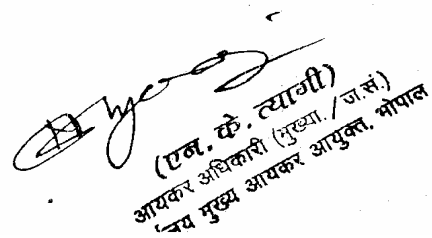 (एन. के. त्यागी)
आयकर अधिकारी (मुख्या. / ज.सं.)
मुख्य आयकर आयुक्त, भोपाल